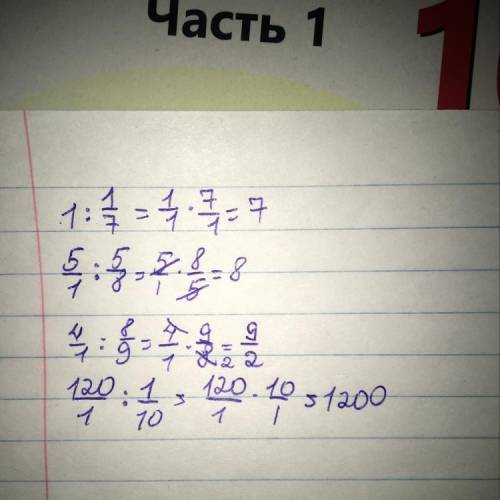 Часть 1
1 : 1/7 = 1/1 · 7/1 = 7
5/1 : 5/8 = 5/1 · 8/5 = 8
4/1 : 8/9 = 4/1 · 9/8 2 = 9/2
120/1 : 1/10 = 120/1 · 10/1 = 1200